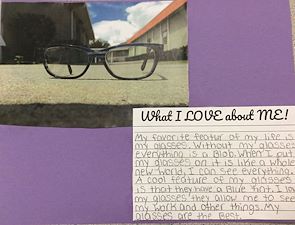 What I LOVE about ME!
My favorite featur of my life is
my glasses. Without my glasses
everything is a Blob. When I put
my glasses on it is like a whole
new world, I can see everything.
A cool feature of my glasses
is that they have a Blue tint. I love
my glasses they allow me to see
my work and other things. My
glasses are the Best.